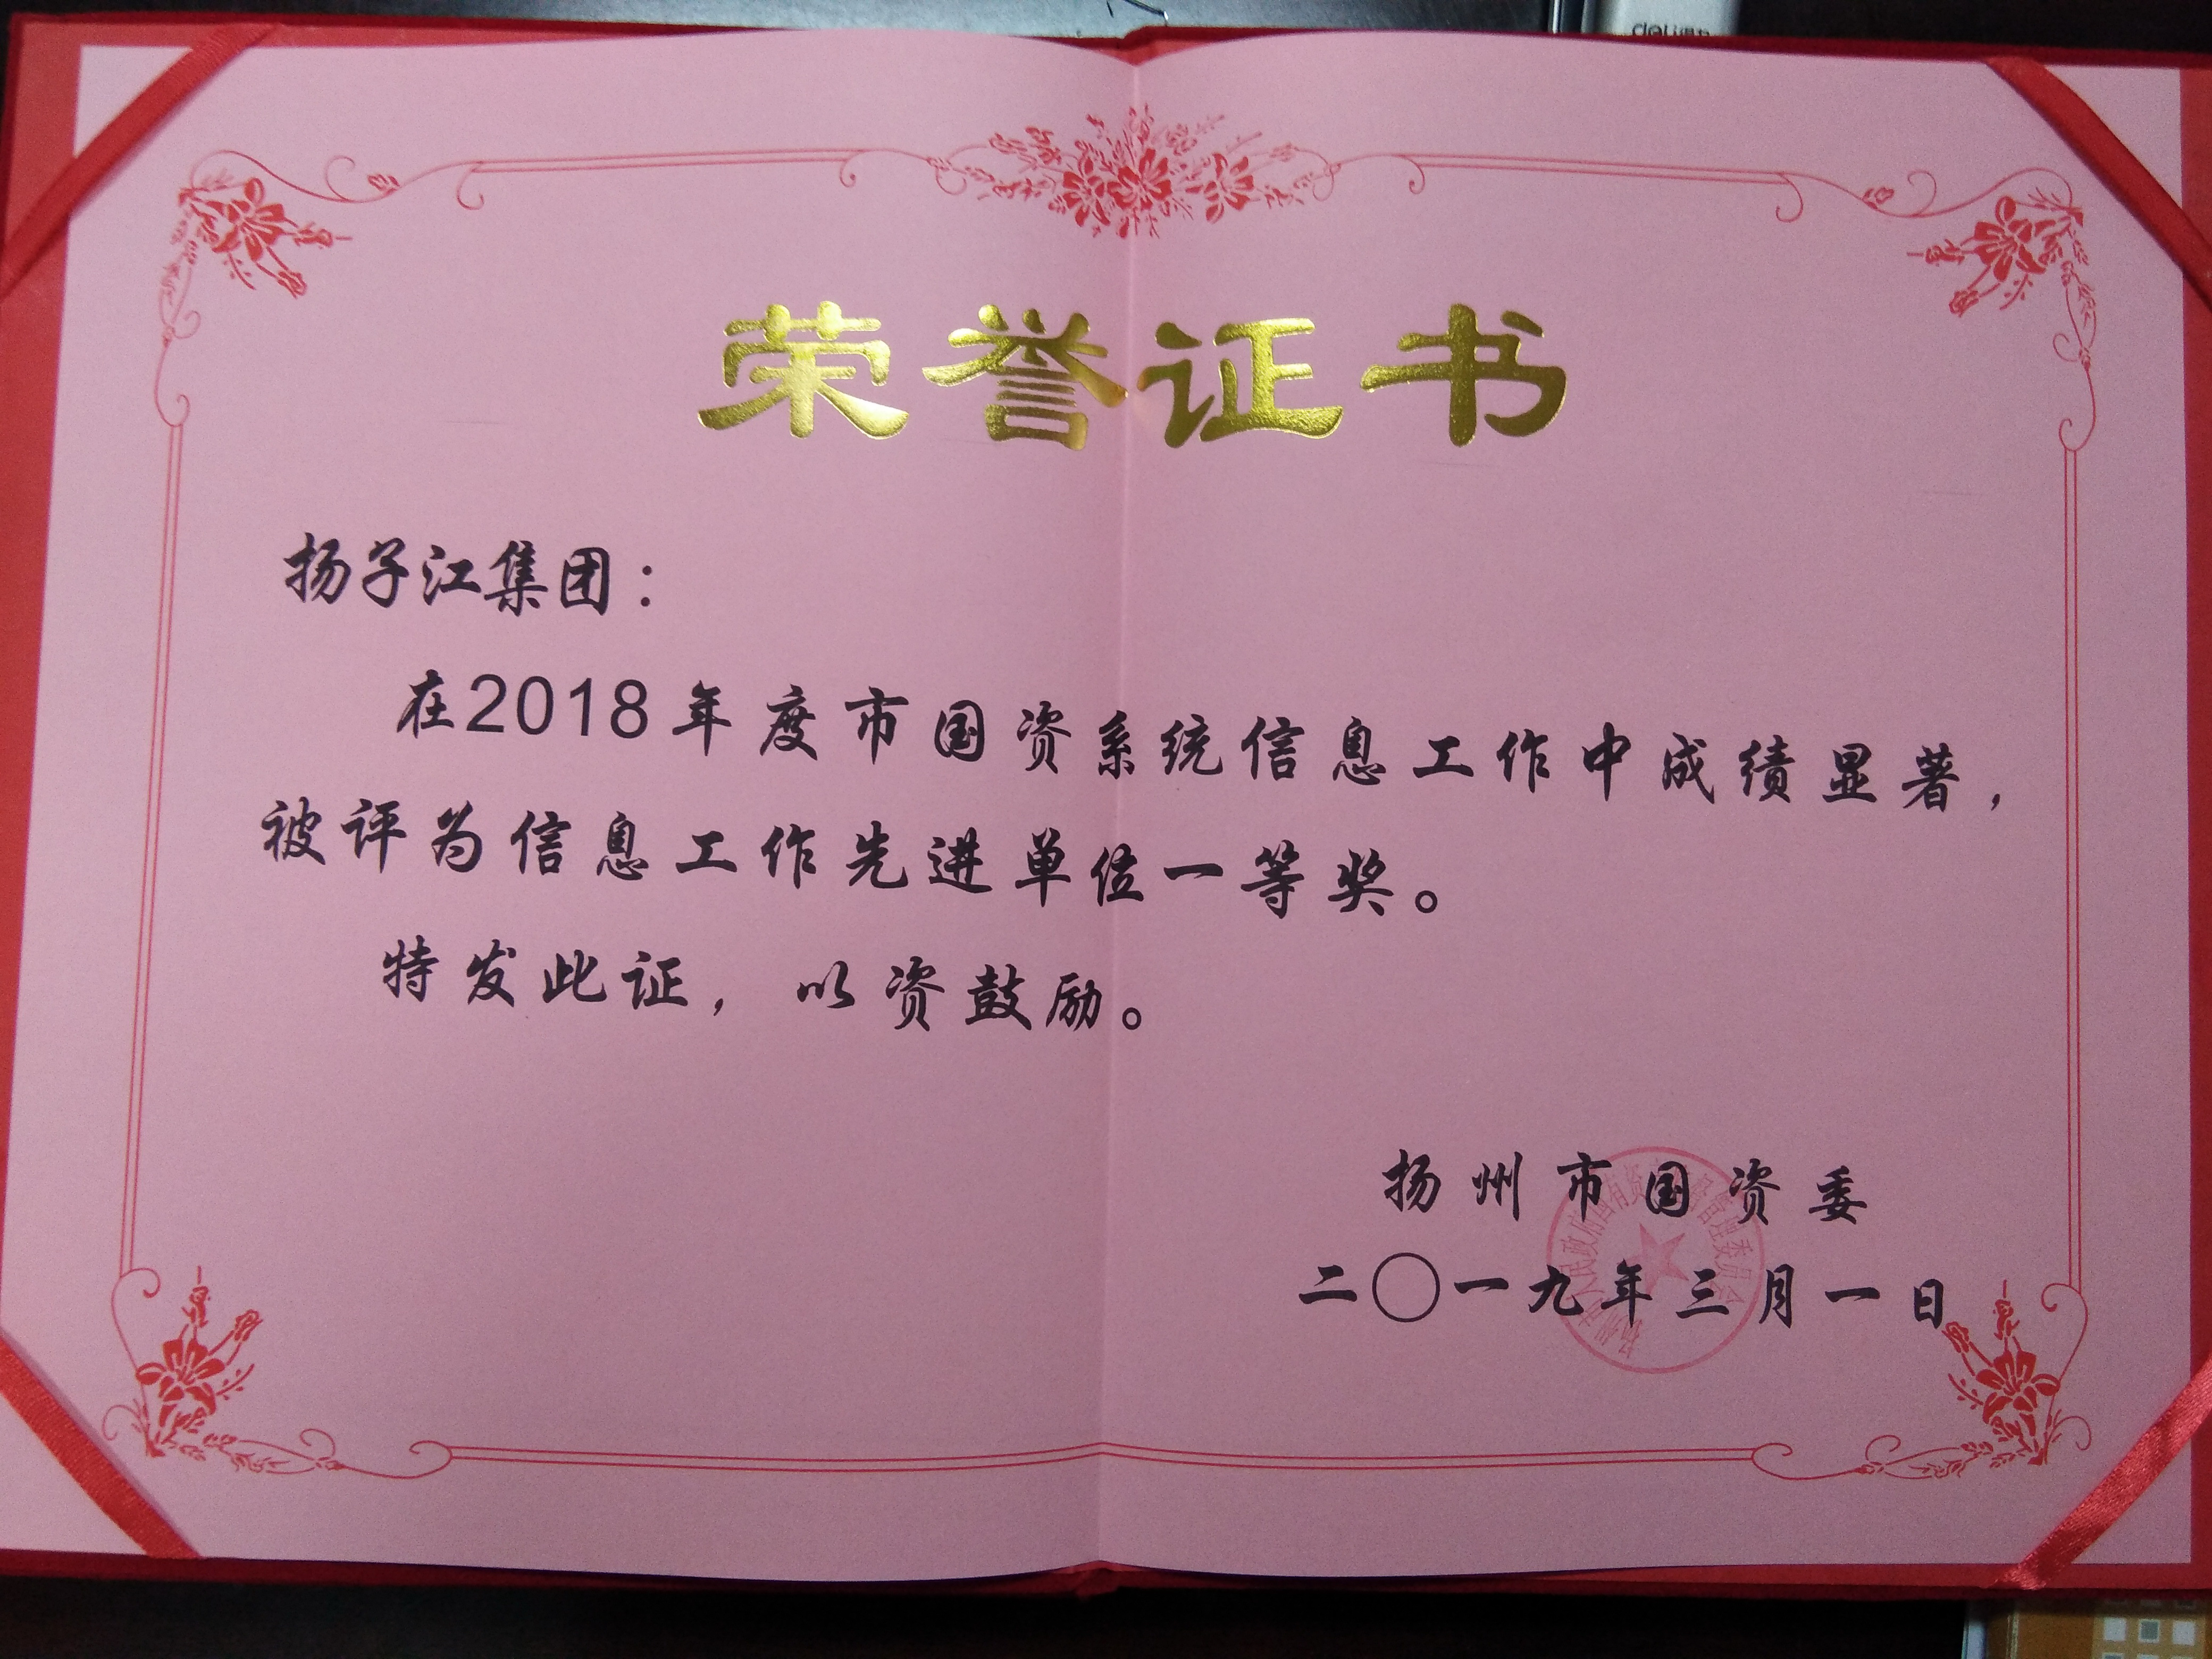 deli得力
荣誉证书
扬子江集团：
在2018年度市国资系统信息工作中成绩显著，
被评为信息工作先进单位一等奖。
特发此证，以资鼓励。
扬州市国资委
二〇一九年三月一日
扬州市人民政府国有资产监督管理委员会